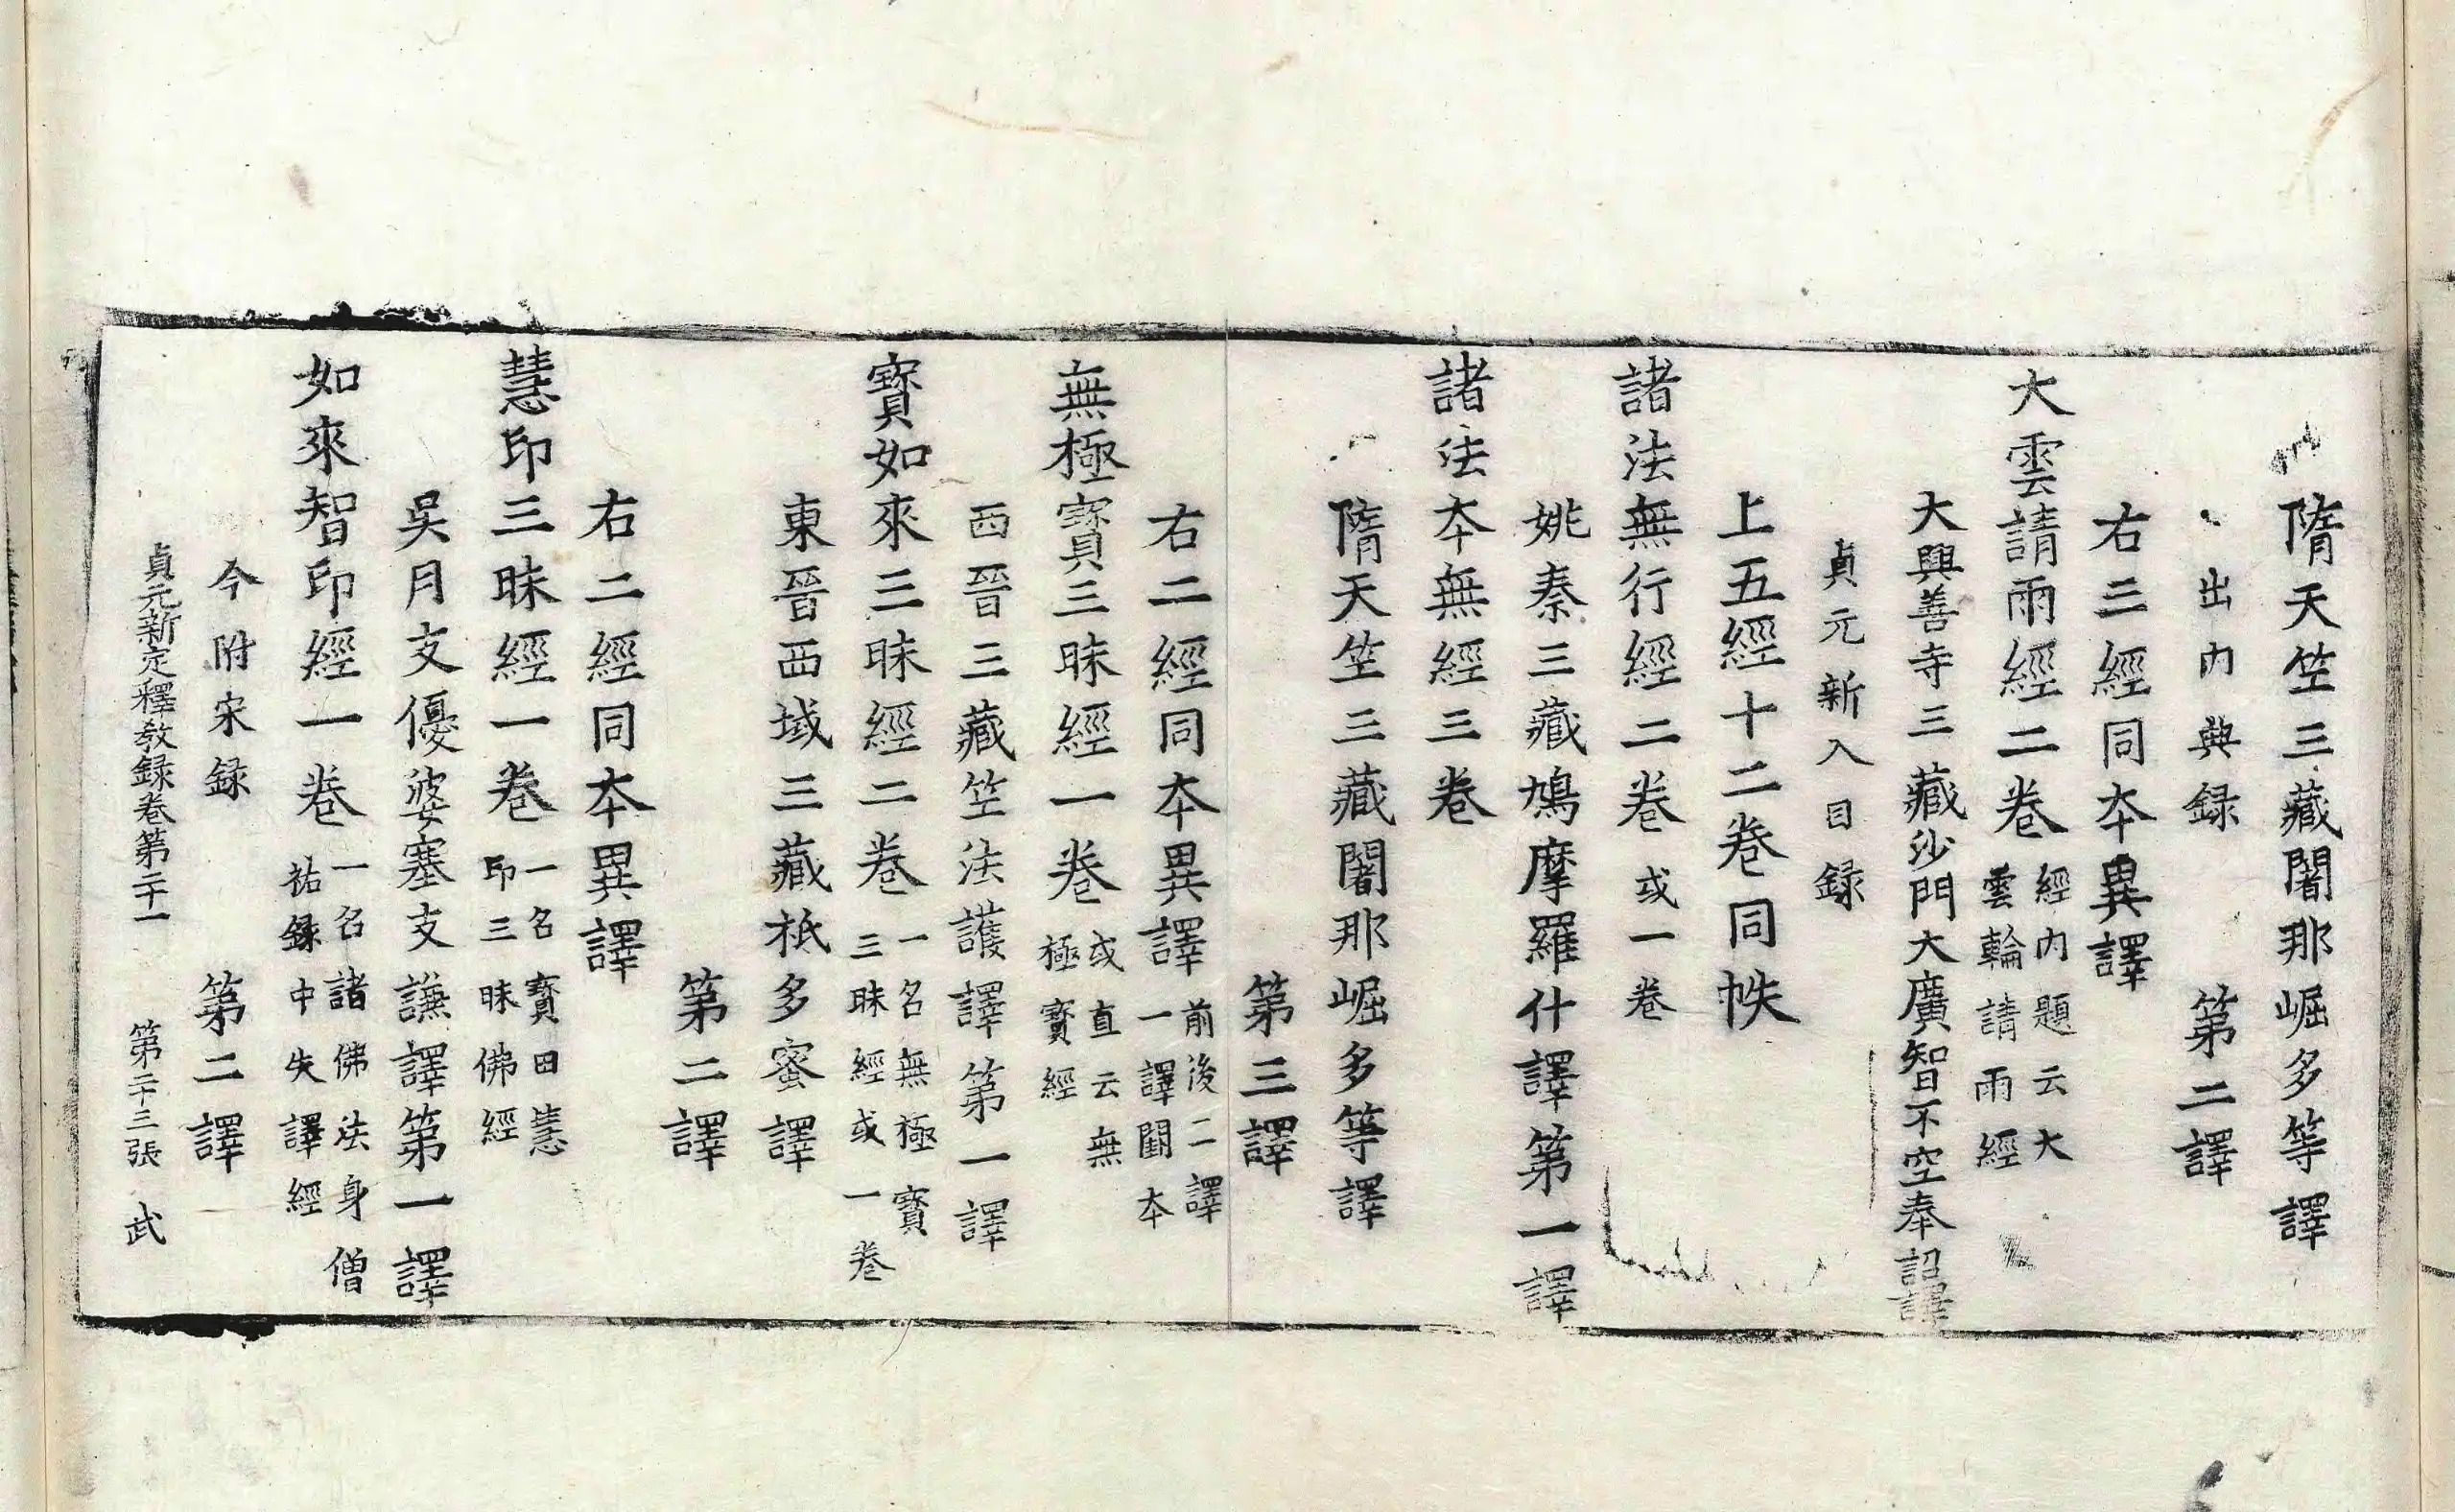 隋天竺三藏闍那崛多等譯
出內典録　第二譯
右三經同本異譯
大雲請雨經二卷經内題云大雲輪請雨經
大興善寺三藏沙門大廣智不空奉詔譯
貞元新入目録
上五經十二卷同帙
諸法無行經二卷或一卷
姚秦三藏鳩摩羅什譯第一譯
諸法本無經三卷
隋天竺三藏闍那崛多等譯
第三譯
右二經同本異譯前後二譯一譯闕本
無極寶三昧經一卷或直云無極寶經
西晉三藏竺法護譯第一譯
寶如來三昧經二卷一名無極寶三昧經或一卷
東晉西域三藏祇多蜜譯
第二譯
右二經同本異譯
慧印三昧經一卷一名寶田慧印三昧佛經
吳月支優婆塞支謙譯第一譯
如來智印經一卷一名諸佛法身僧祐録中失譯經
今附宋録　第二譯
貞元新定釋教録卷第二十一　第二十三張　武